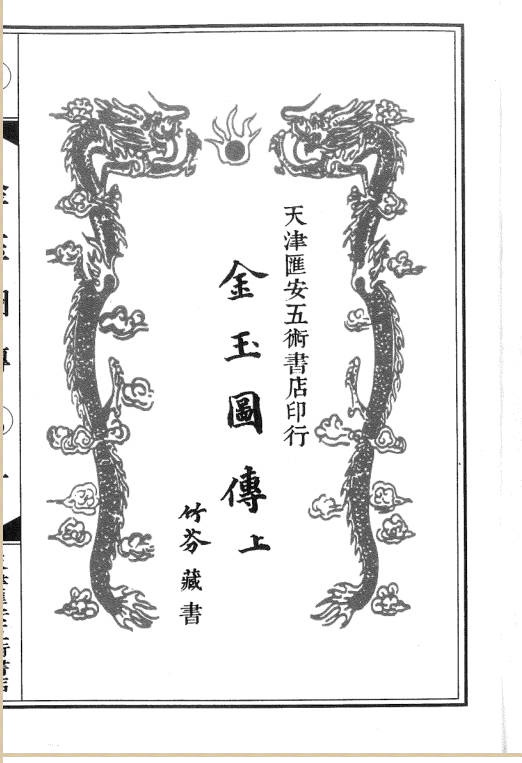 天津匯安五術書店印行
金玉圖傳上
竹芬藏書